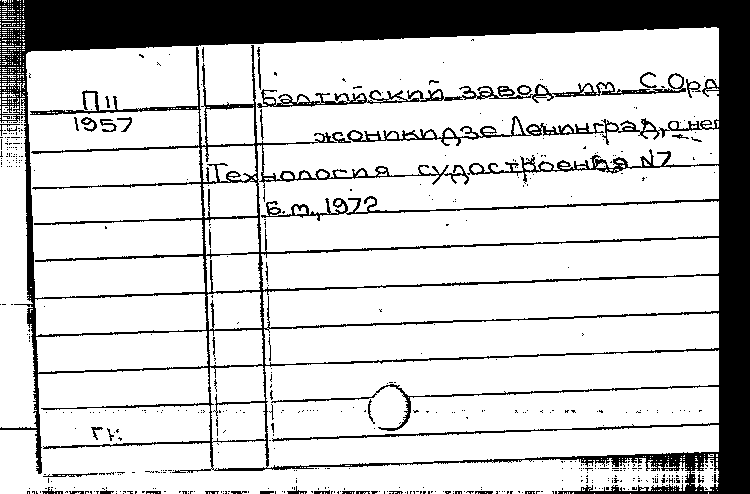 П11
1957
Балтийский завод им. С.Орд
жоникидзе Ленинград, о нем
Технология судостроения №7
Б.м., 1972
ГК